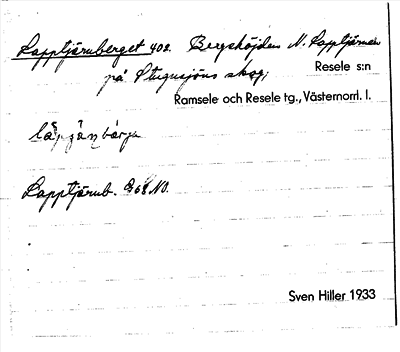 Lapptjärnberget 402. Bergshöjden N. Lapptjärnen
på Stugusjöns skog;
Resele s:n
Ramsele och Resele tg., Västernorrl. l.
Lapptjärnb. 968 NO.
Sven Hiller 1933